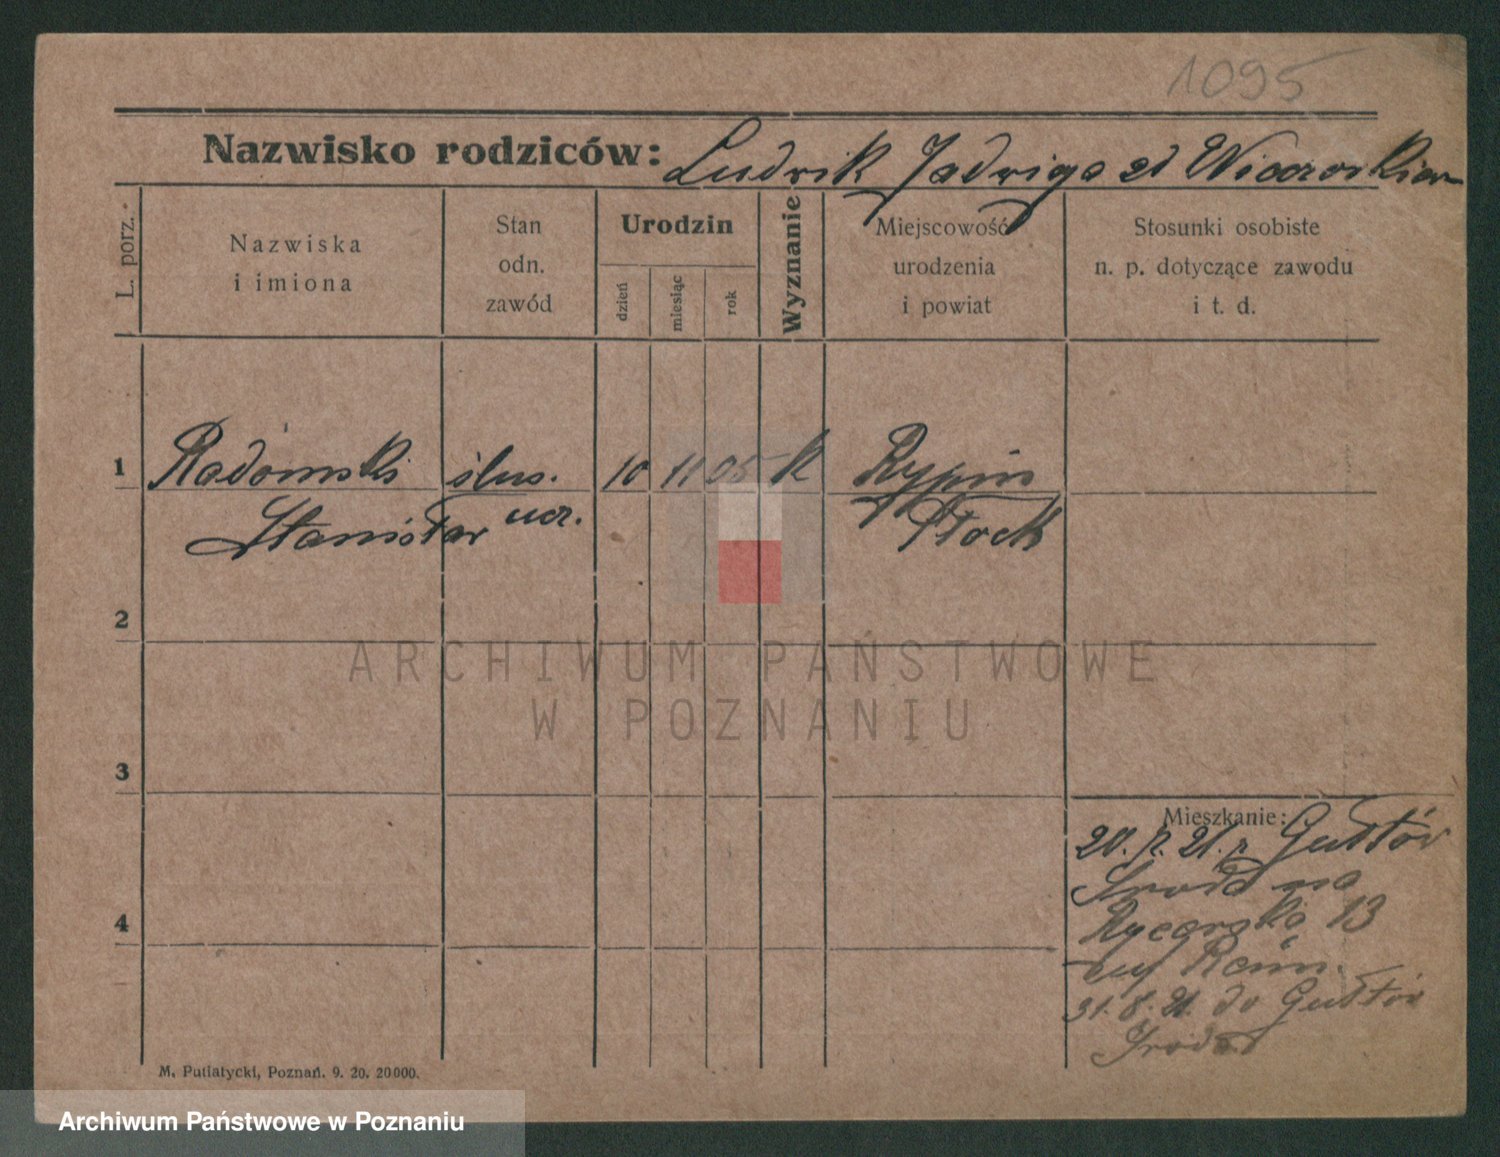 1095
Nazwisko rodziców: Ludwik Jadwiga zd
L. porz.
Nazwiska
i imiona
Stan
odn.
zawód
Urodzin
dzień
miesiąc
rok
Wyznanie
Miejscowość
urodzenia
i powiat
Stosunki osobiste
n. p. dotyczące zawodu
i t. d.
1 Radomski ślus. 10 11 05 K Rypin
Stanisław ucz. Płock
2
3
4
Mieszkanie:
21. Gułtów
Środa na
Rycerską 13
31. 8. 21. do Gułtów
Środa
M. Putiatycki, Poznań. 9. 20. 20000.
ARCHIWUM PAŃSTWOWE
W POZNANIU
Archiwum Państwowe w Poznaniu